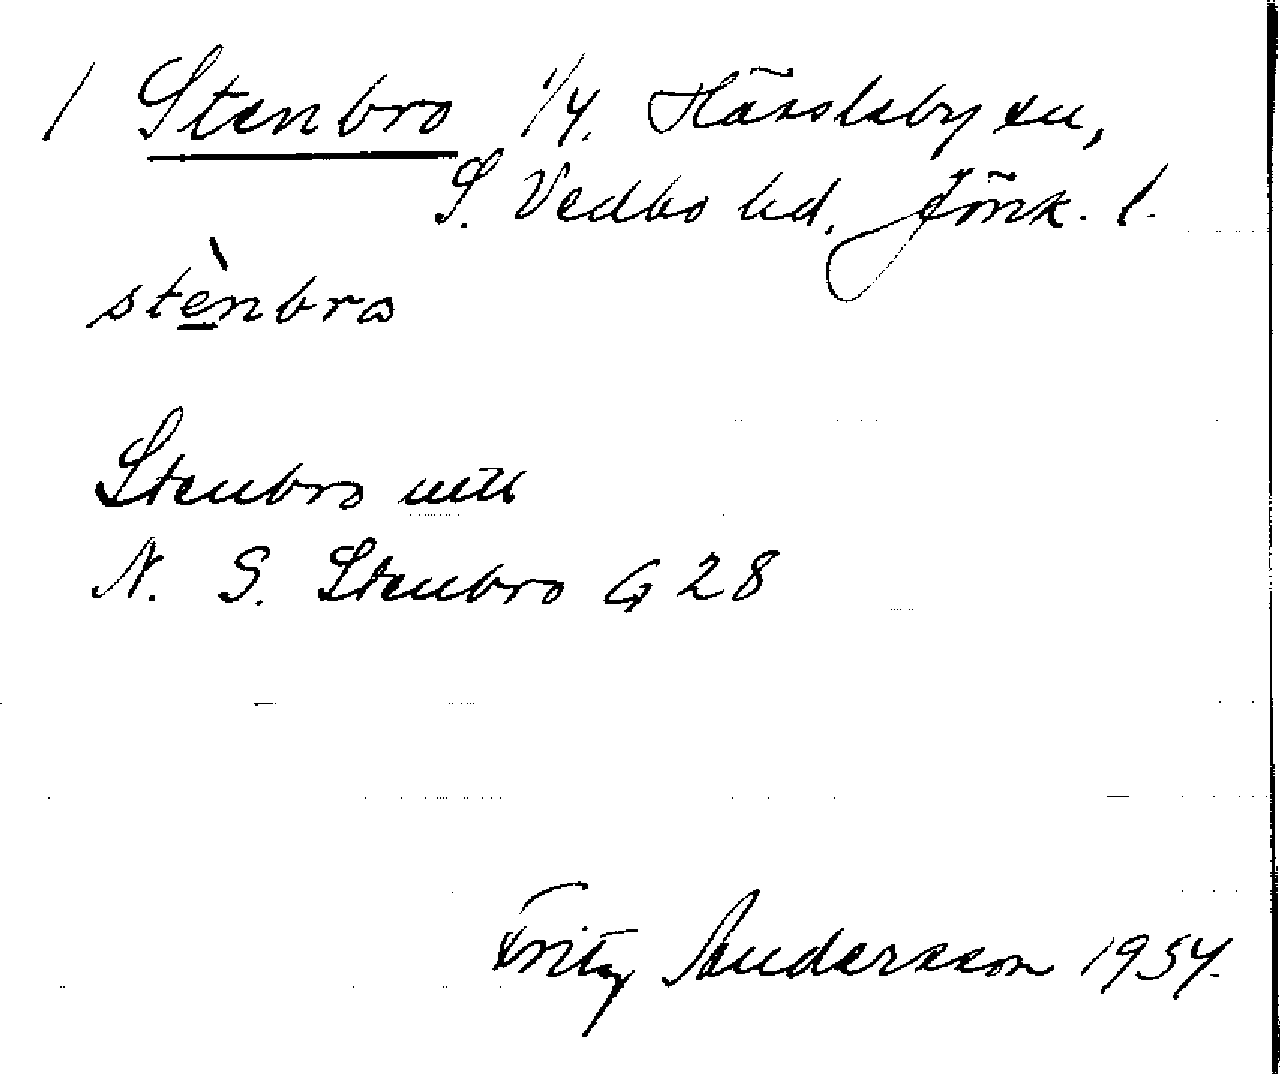 1 Stenbro 1/4. Hässleby sn,
S. Vedbo hd. Jönk. l.
stènbro
Stenbro mtl
N. S. Stenbro G 28
Fritz Andersson 1954.